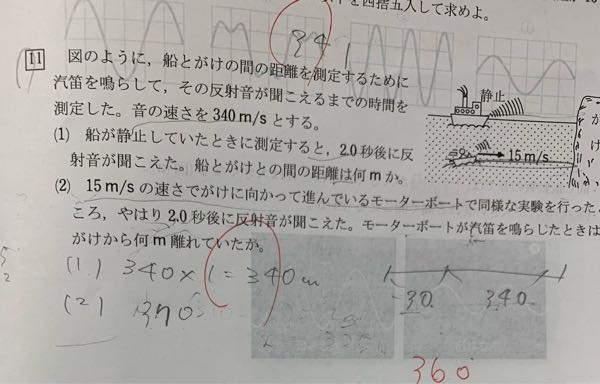 下を四捨五入して求めよ。
341
11 図のように,船とがけの間の距離を測定するために
汽笛を鳴らして,その反射音が聞こえるまでの時間を
測定した。音の速さを340m/sとする。
静止
(1) 船が静止していたときに測定すると,2.0秒後に反
射音が聞こえた。船とがけとの間の距離は何mか。
15m/s
がけ
(2) 15m/sの速さでがけに向かって進んでいるモーターボートで同様な実験を行った
ころ,やはり2.0秒後に反射音が聞こえた。モーターボートが汽笛を鳴らしたときは
がけから何m離れていたか。
(1) 340×1=340m
30 340
(2) 370
360